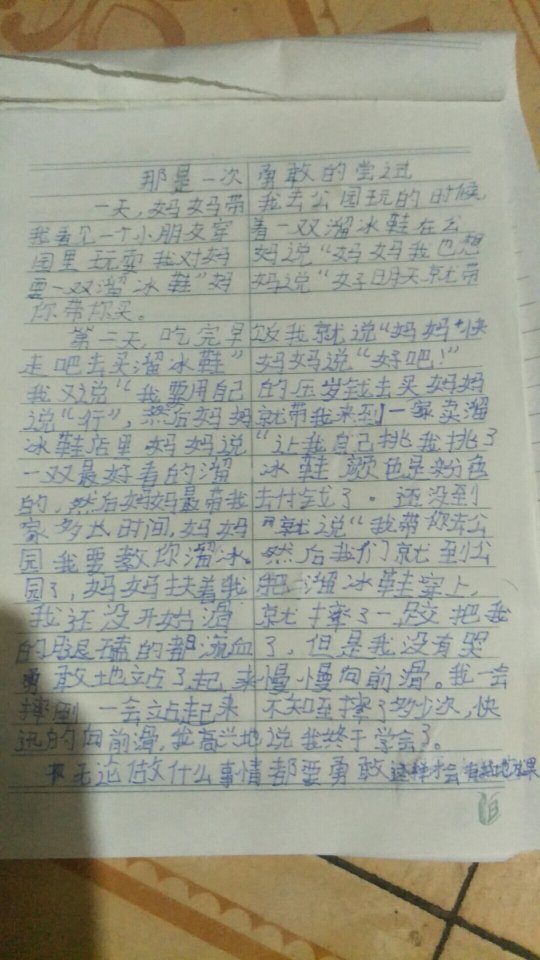 那是一次勇敢的尝过
一天，妈妈带我去公园玩的时候，
我看见一个小朋友穿着一双溜冰鞋在公
园里玩耍我对妈妈说“妈妈我也想
要一双溜冰鞋”妈妈说“好明天就带
你带你买。
第二天，吃完早饭我就说“妈妈快
走吧去买溜冰鞋”妈妈说“好吧！”
我又说“我要用自己的压岁钱去买妈妈
说“行”，然后妈妈就带我来到一家卖溜
冰鞋店里妈妈说“让我自己挑我挑了
一双最好看的溜冰鞋颜色是粉色
的，然后妈妈最带我去付钱了。还没到
家多长时间，妈妈就说“我带你去公
园我要教你溜冰。然后我们就到公
园了，妈妈扶着我把溜冰鞋穿上，
我还没开始滑就摔了一跤把我
的腿磕的都流血了，但是我没有哭
勇敢地站了起来慢慢向前滑。我一会
摔倒一会站起来不知摔了多少次，快
迅的向前滑，我高兴地说我终于学会了。
无论做什么事情都要勇敢这样才会有